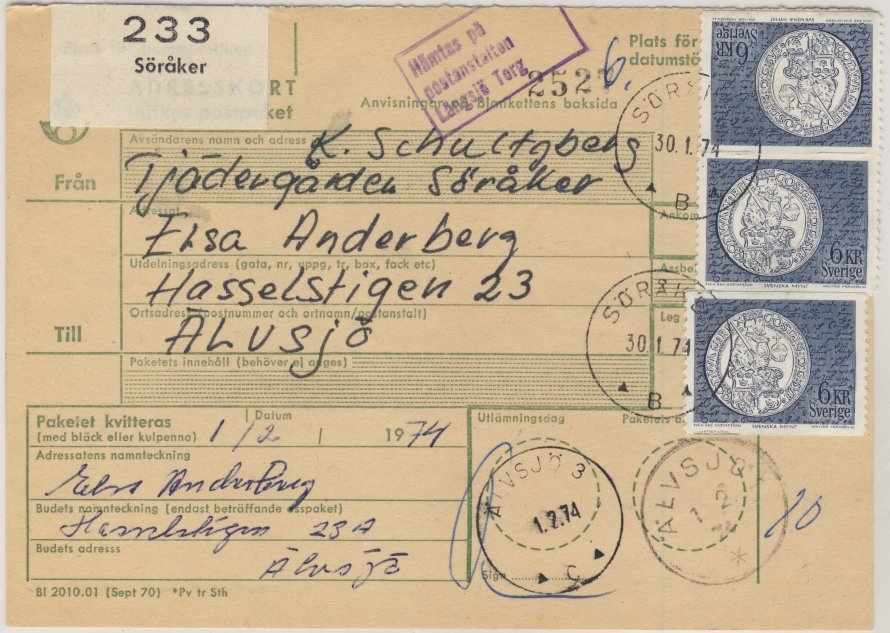 233
Söråker
ADRESSKORT
Hämtas på
postanstalten
Långsjö Torg
2527
6.
Plats för
datumstä
Anvisningar på blankettens baksida
Avsändarens namn och adress
K. Schultzberg
Från
Tjädergården Söråker
Adressat
Elsa Anderberg
Utdelningsadress (gata, nr, uppg, tr, box, fack etc)
Hasselstigen 23
Ortsadress (postnummer och ortnamn/postanstalt)
Till
ÄLVSJÖ
Paketets innehåll (behöver ej anges)
Ankom
Assbe
Leg
SÖRÅKER
30.1.74
B
SÖRÅKER
30.1.74
B
6 KR
Sverige
SVENSKA MYNT
6 KR
Sverige
SVENSKA MYNT
6 KR
Sverige
SVENSKA MYNT
Paketet kvitteras
(med bläck eller kulpenna)
Datum
1/2 1974
Utlämningsdag
Paketets a
Adressatens namnteckning
Elsa Anderberg
Budets namnteckning (endast beträffande asspaket)
Hasselstigen 23A
Budets adresss
Älvsjö
ÄLVSJÖ 3
1.2.74
C
ÄLVSJÖ 1
1 2
*
Sign
BI 2010.01 (Sept 70) *Pv tr Sth